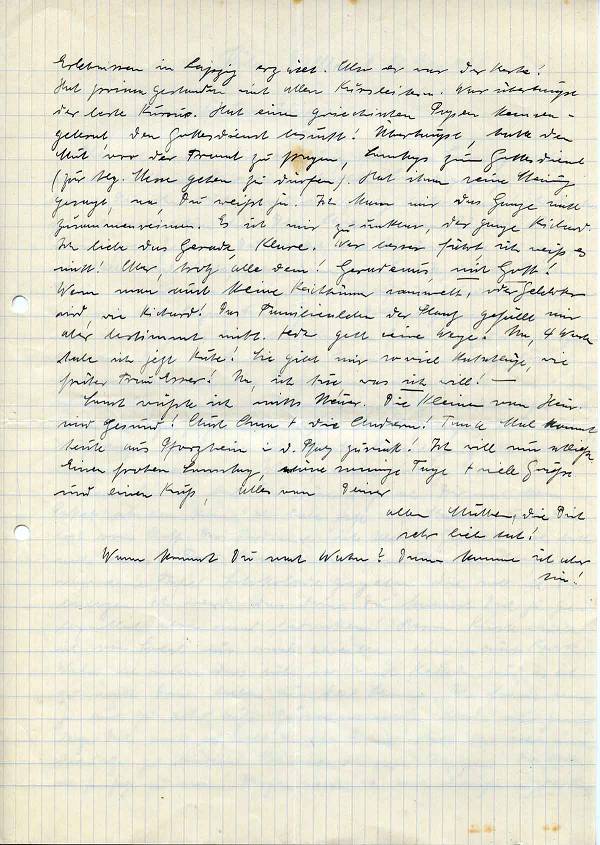 Erlebnissen in Leipzig erzählt. Aber er war der Beste!
Hat prima gestanden mit allen Kursleitern. War überhaupt
der beste Kursus. Hat einen griechischen Popen kennen-
gelernt, den Gottesdienst besucht! Überhaupt, hatte den
Mut, vor der Front zu fragen, Sonntags zum Gottesdienst
(zur hlg. Messe gehen zu dürfen). Hat ihnen seine Meinung
gesagt, na, Du weißt ja! Ich kann mir das Ganze nicht
zusammenreimen. Es ist mir zu unklar, der ganze Richard.
Ich liebe das Gerade, Klare. Wer besser fährt, ich weiß es
nicht! Aber, trotz alle dem! Geradeaus, mit Gott!
Wenn man auch keine Reichtümer sammelt, oder
wird, wie Richard! Das Familienleben der gefällt mir
aber bestimmt nicht. Jeder geht seine Wege. Na, 4 Wochen
habe ich jetzt Ruhe! Sie gibt mir so viel Ratschläge, wie
später! Na, ich tue was ich will! —
Sonst wüßte ich nichts Neues. Die Kleinen vom Heinr.
sind gesund! Auch Anna + die Anderen! Tante kommt
heute aus Pforzheim i. d. Pfalz zurück! Ich will nun schließen
Einen frohen Sonntag, sonnige Tage + viele Grüße
und einen Kuß, alles von Deiner
alten Mutter, die Dich
sehr lieb hat!
Wann kommst Du nach? Dann komme ich aber
hin!